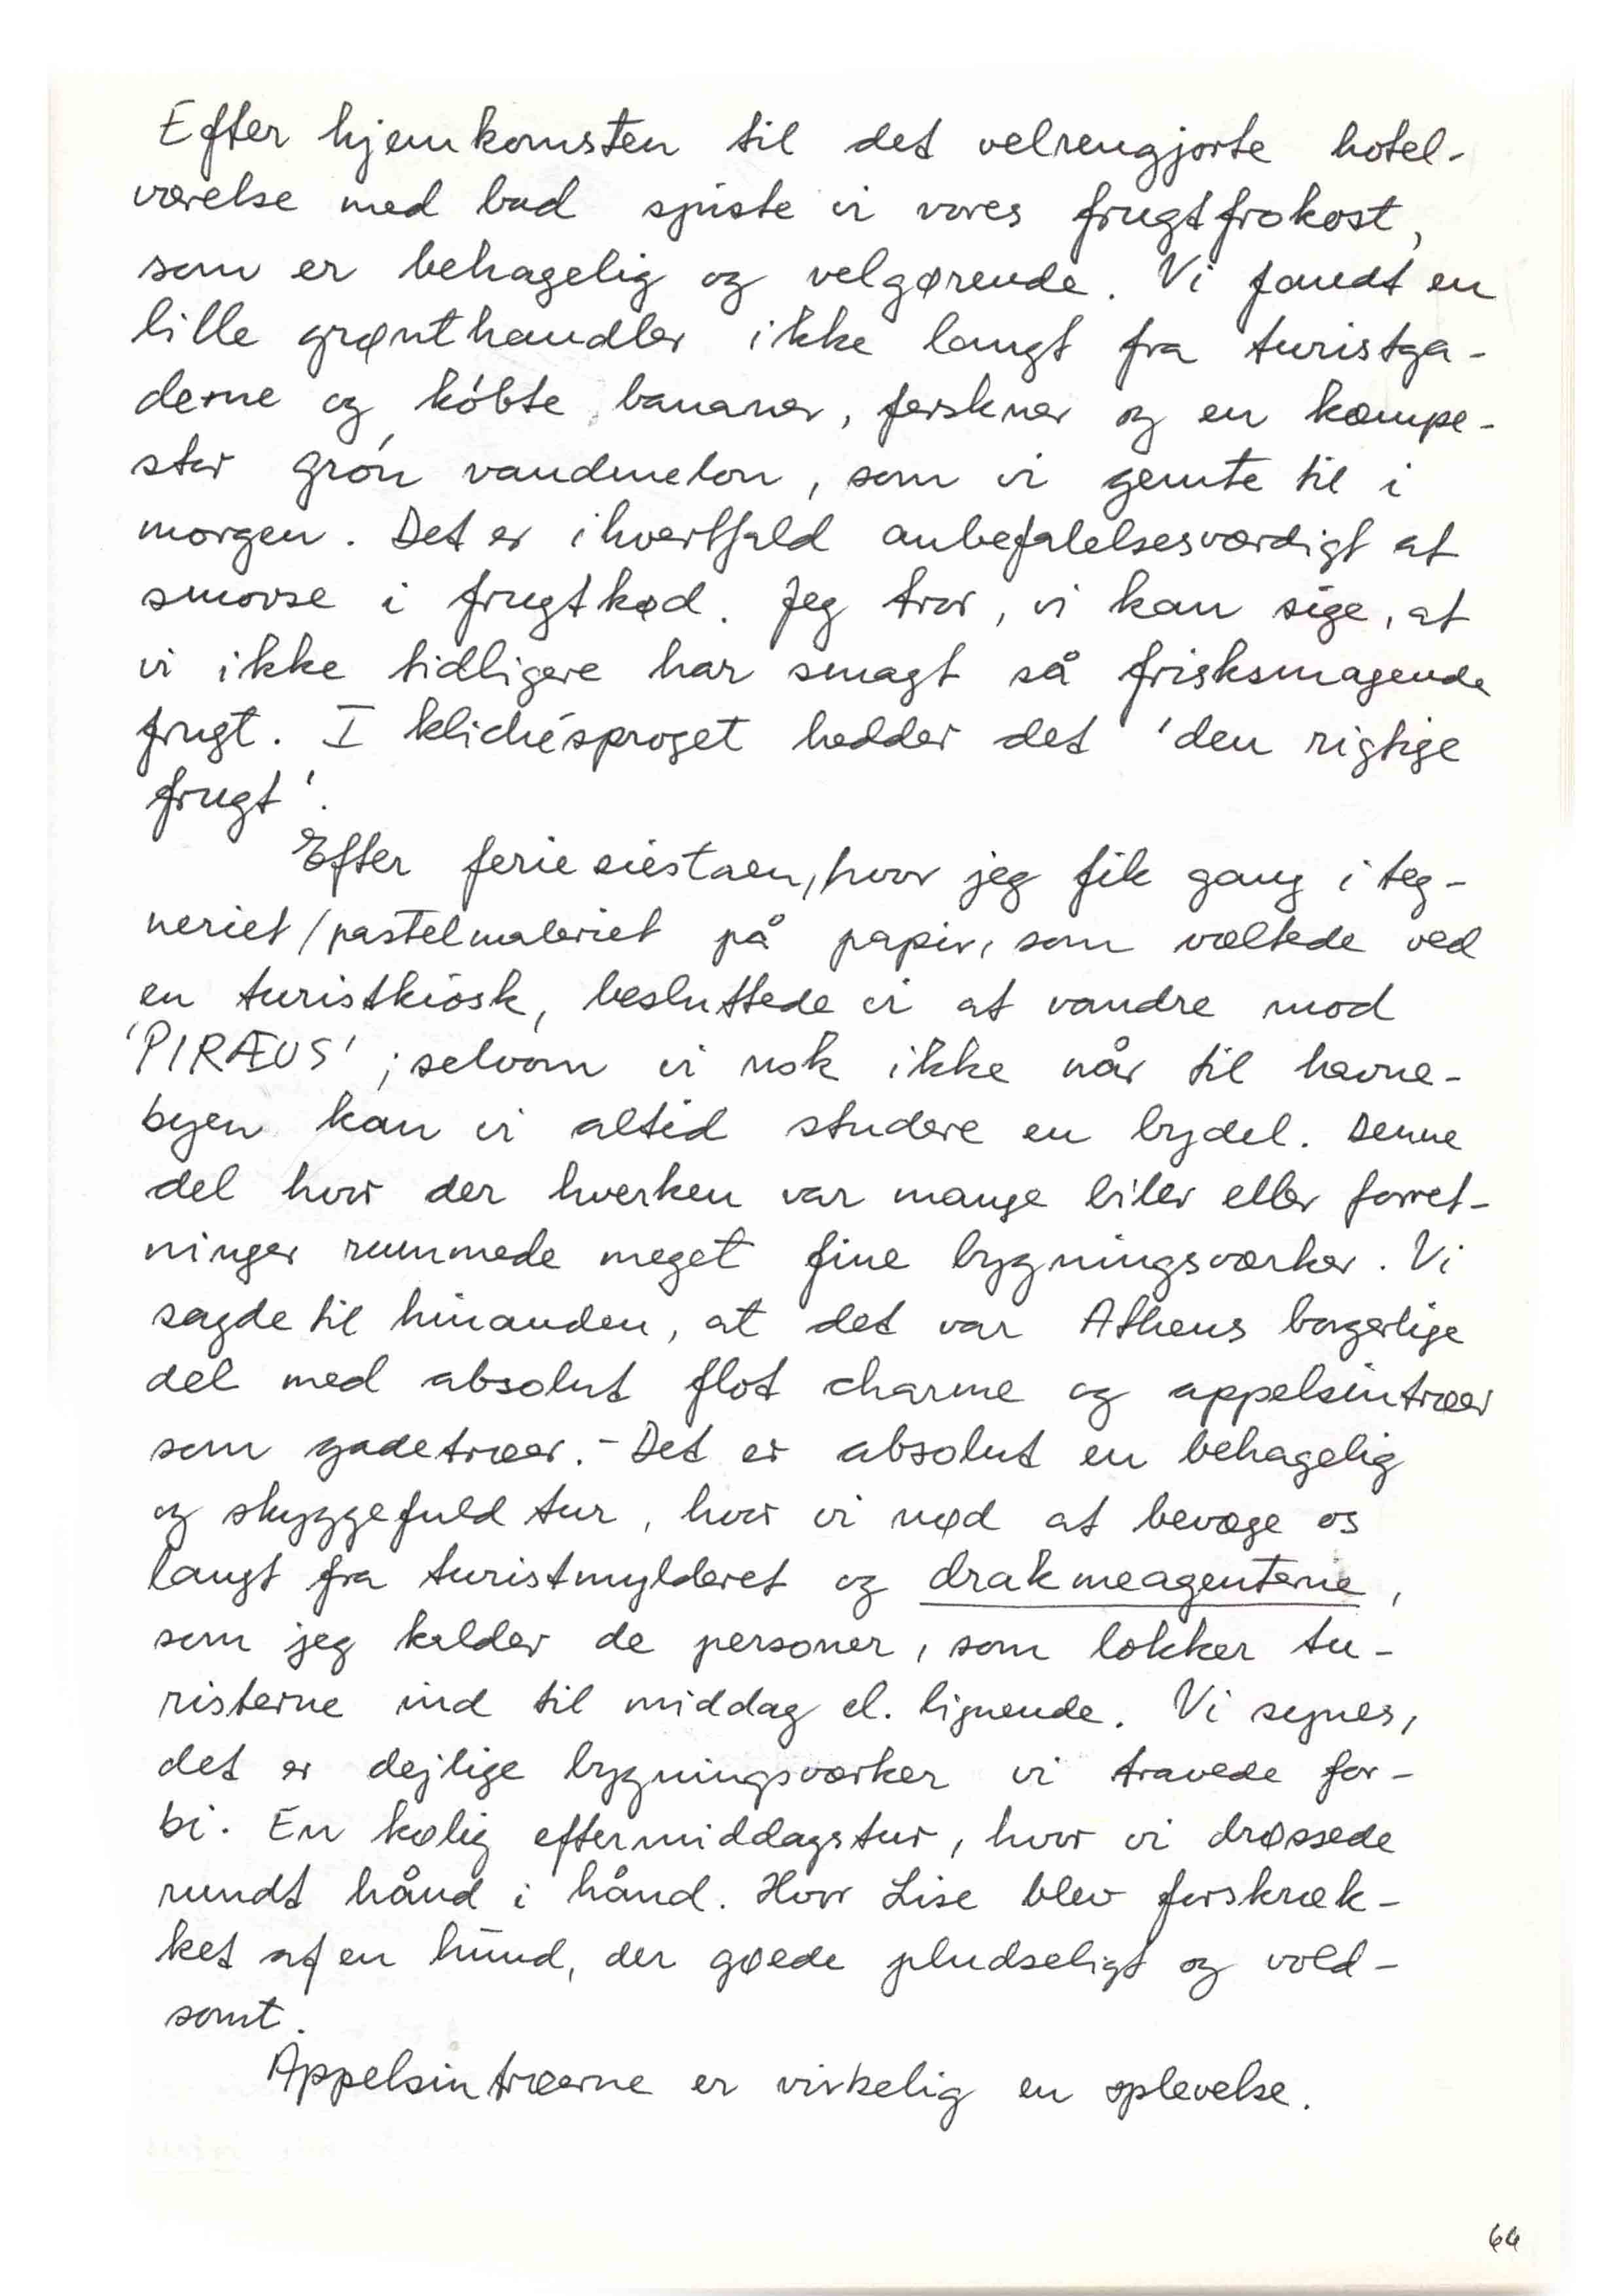 Efter hjemkomsten til det velrengjorte hotel-
værelse med bad spiste vi vores frugtfrokost,
som er behagelig og velgørende. Vi fandt en
lille grønthandler ikke langt fra turistga-
derne og købte bananer, ferskner og en kæmpe-
stor grøn vandmelon, som vi gemte til i
morgen. Det er ihvertfald anbefalelsesværdigt at
smovse i frugtkød. Jeg tror, vi kan sige, at
vi ikke tidligere har smagt så frisksmagende
frugt. I klichésproget hedder det 'den rigtige
frugt'.
Efter feriesiestaen, hvor jeg fik gang i teg-
neriet/pastelmaleriet på papir, som væltede ved
en turistkiosk, besluttede vi at vandre mod
'PIRÆUS'; selvom vi nok ikke når til havne-
byen kan vi altid studere en bydel. Denne
del hvor der hverken var mange biler eller forret-
ninger rummede meget fine bygningsværker. Vi
sagde til hinanden, at det var Athens borgerlige
del med absolut flot charme og appelsintræer
som gadetræer. - Det er absolut en behagelig
og skyggefuld tur, hvor vi nød at bevæge os
langt fra turistmylderet og drakmeagenterne,
som jeg kalder de personer, som lokker tu-
risterne ind til middag el. lignende. Vi synes,
det er dejlige bygningsværker vi travede for-
bi. En kølig eftermiddagstur, hvor vi drøssede
rundt hånd i hånd. Hvor Lise blev forskræk-
ket af en hund, der gøede pludseligt og vold-
somt.
Appelsintræerne er virkelig en oplevelse.
66